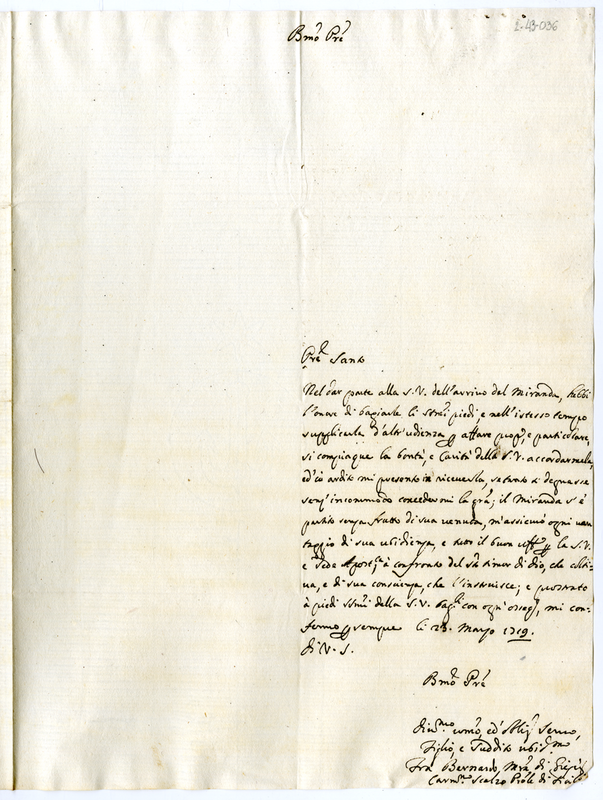 Bmo Pre
1-43-036
Pre Santo
Nel dar parte alla S.V. dell'arrivo del Miranda, hebbi
l'onore di bagiarle li piedi e nell'istesso tempo
supplicarla d'altr'udienza affare e particolare,
si compiaque la bontà, e Carità della S.V. accordarmela,
ed io ardito mi presento in riceverla, se tanto si degnasse
senz'incommodo concedermi la gra; il Miranda s'è
partito senza frutto di sua venuta, m'assicurò ogni van
taggio di sua ubidienza, e tutto il buon la S.V.
e Sede à confronto del timor di dio, che colti-
va, e di sua conscienza, che l'instruisce; e prostrato
à piedi della S.V. con ogni mi con-
fermo sempre li 23. Marzo 1719.
di V. S.
Bmo Pre
ed Servo,
Figlio, e Suddito
Fra Bernardo di
Scalzo di